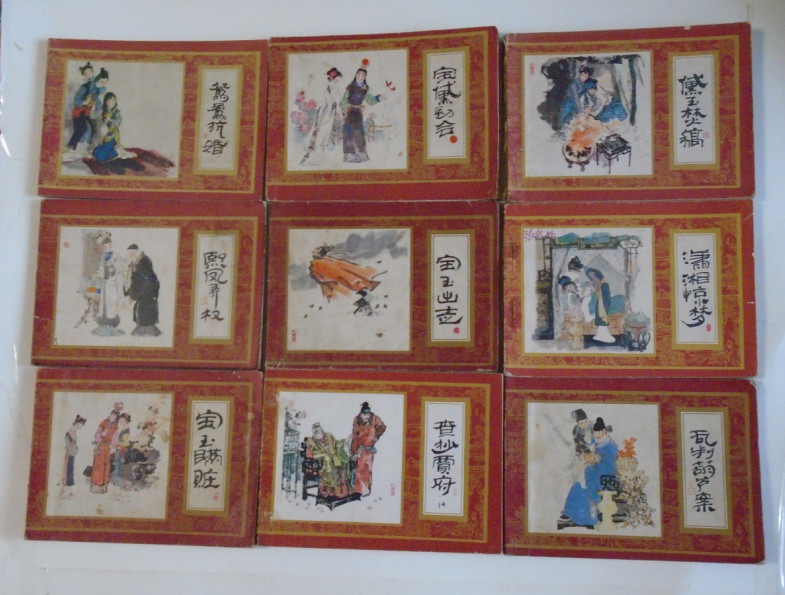 鸳鸯抗婚
宝黛初会
黛玉焚稿
熙凤弄权
宝玉出走
潇湘惊梦
宝玉瞒赃
查抄贾府
14
乱判葫芦案